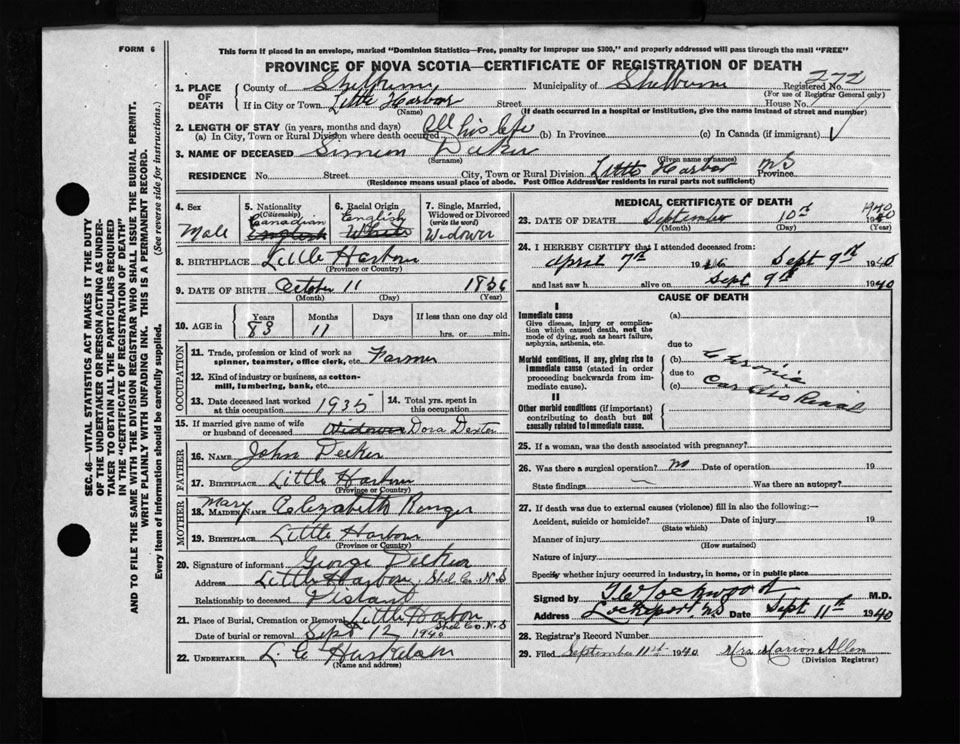 FORM 6
This form if placed in an envelope, marked "Dominion Statistics—Free, penalty for improper use $300," and properly addressed will pass through the mail "FREE"
PROVINCE OF NOVA SCOTIA—CERTIFICATE OF REGISTRATION OF DEATH
SEC. 46—VITAL STATISTICS ACT MAKES IT THE DUTY
OF THE UNDERTAKER OR PERSON ACTING AS UNDER-
TAKER TO OBTAIN ALL THE PARTICULARS REQUIRED
IN THE "CERTIFICATE OF REGISTRATION OF DEATH"
AND TO FILE THE SAME WITH THE DIVISION REGISTRAR WHO SHALL ISSUE THE BURIAL PERMIT.
WRITE PLAINLY WITH UNFADING INK. THIS IS A PERMANENT RECORD.
Every item of information should be carefully supplied. (See reverse side for instructions.)
1. PLACE OF DEATH
County of Shelburne Municipality of Shelburne Registered No. 272
(For use of Registrar General only)
If in City or Town Little Harbor Street House No.
(Name) (If death occurred in a hospital or institution, give the name instead of street and number)
2. LENGTH OF STAY (in years, months and days)
(a) In City, Town or Rural Division where death occurred All his life (b) In Province. (c) In Canada (if immigrant)
3. NAME OF DECEASED Simeon Decker
(Surname) (Given name or names)
RESIDENCE No. Street. City, Town or Rural Division Little Harbor Province NS
(Residence means usual place of abode. Post Office Address for residents in rural parts not sufficient)
4. Sex Male
5. Nationality (Citizenship) Canadian English
6. Racial Origin English White
7. Single, Married, Widowed or Divorced (write the word) Widower
8. BIRTHPLACE Little Harbour
(Province or Country)
9. DATE OF BIRTH October 11 1856
(Month) (Day) (Year)
10. AGE in Years 83 Months 11 Days If less than one day old
hrs. or min.
OCCUPATION
11. Trade, profession or kind of work as spinner, teamster, office clerk, etc. Farmer
12. Kind of industry or business, as cotton-mill, lumbering, bank, etc.
13. Date deceased last worked at this occupation 1935
14. Total yrs. spent in this occupation
15. If married give name of wife or husband of deceased Widower Dora Dexter
FATHER
16. NAME John Decker
17. BIRTHPLACE Little Harbour
(Province or Country)
MOTHER
18. MAIDEN NAME Mary Elizabeth Ringer
19. BIRTHPLACE Little Harbour
(Province or Country)
20. Signature of informant George Decker
Address Little Harbour, Shel. Co. N.S
Relationship to deceased Distant
21. Place of Burial, Cremation or Removal Little Harbour Shel Co. N.S
Date of burial or removal Sept 12 1940
22. UNDERTAKER L. C.
(Name and address)
MEDICAL CERTIFICATE OF DEATH
23. DATE OF DEATH September 10th 1940
(Month) (Day) (Year)
24. I HEREBY CERTIFY that I attended deceased from:
April 7th Sept 9th 1940
and last saw h alive on Sept 9th 1940
CAUSE OF DEATH
I
Immediate cause
Give disease, injury or complication which caused death, not the mode of dying, such as heart failure, asphyxia, asthenia, etc.
(a)
due to
Morbid conditions, if any, giving rise to immediate cause (stated in order proceeding backwards from immediate cause).
(b) Chronic
due to
(c) Cardio Renal
II
Other morbid conditions (if important) contributing to death but not causally related to immediate cause.
25. If a woman, was the death associated with pregnancy?
26. Was there a surgical operation? no Date of operation 19
State findings Was there an autopsy?
27. If death was due to external causes (violence) fill in also the following:—
Accident, suicide or homicide? Date of injury 19
(State which)
Manner of injury
(How sustained)
Nature of injury
Specify whether injury occurred in industry, in home, or in public place
Signed by Lockwood M.D.
Address Lockeport, NS Date Sept 11th 1940
28. Registrar's Record Number
29. Filed September 11th 1940 Mrs Marion Allen
(Division Registrar)